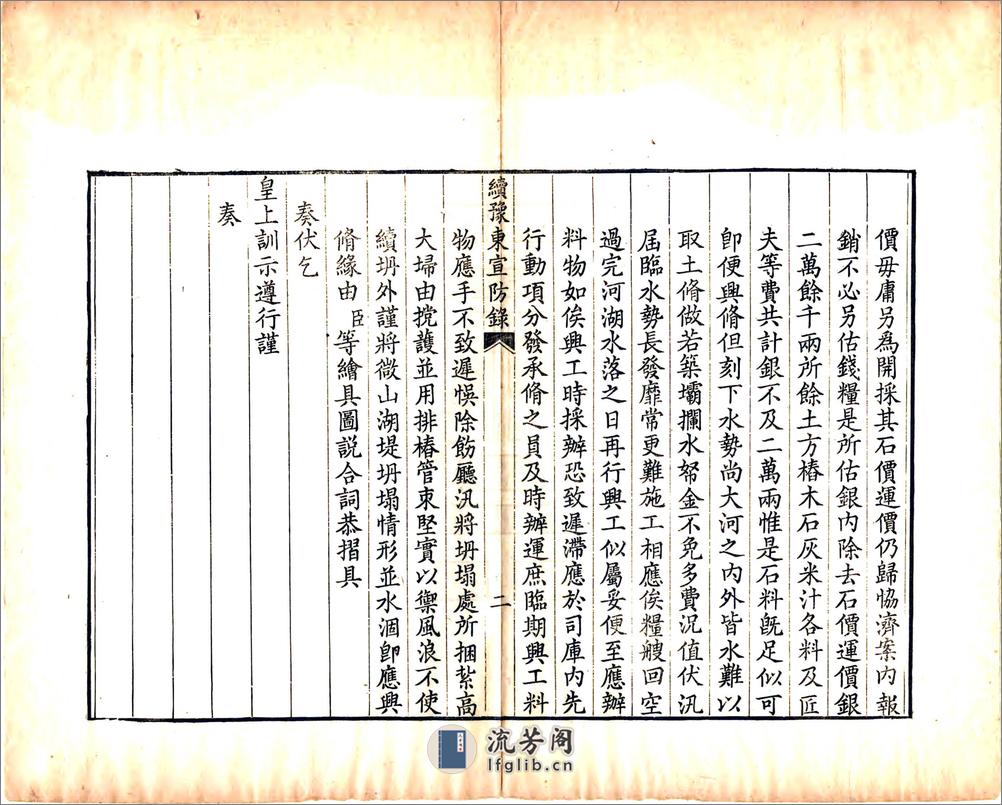 價毋庸另爲開採其石價運價仍歸恊濟案內報
銷不必另估錢糧是所估銀內除去石價運價銀
二萬餘千兩所餘土方樁木石灰米汁各料及匠
夫等費共計銀不及二萬兩惟是石料旣足似可
卽便興脩但刻下水勢尚大河之內外皆水難以
取土脩做若築壩攔水帑金不免多費況值伏汛
屆臨水勢長發靡常更難施工相應俟糧艘回空
過完河湖水落之日再行興工似屬妥便至應辦
料物如俟興工時採辦恐致遲滯應於司庫內先
行動項分發承脩之員及時辦運庶臨期興工料
續豫東宣防錄
二
物應手不致遲悞除飭廳汛將坍塌處所捆紮高
大埽由搅護並用排樁管束堅實以禦風浪不使
續坍外謹將微山湖堤坍塌情形並水涸卽應興
脩緣由臣等繪具圖説合詞恭摺具
奏伏乞
皇上訓示遵行謹
奏
流芳阁
lfglib.cn